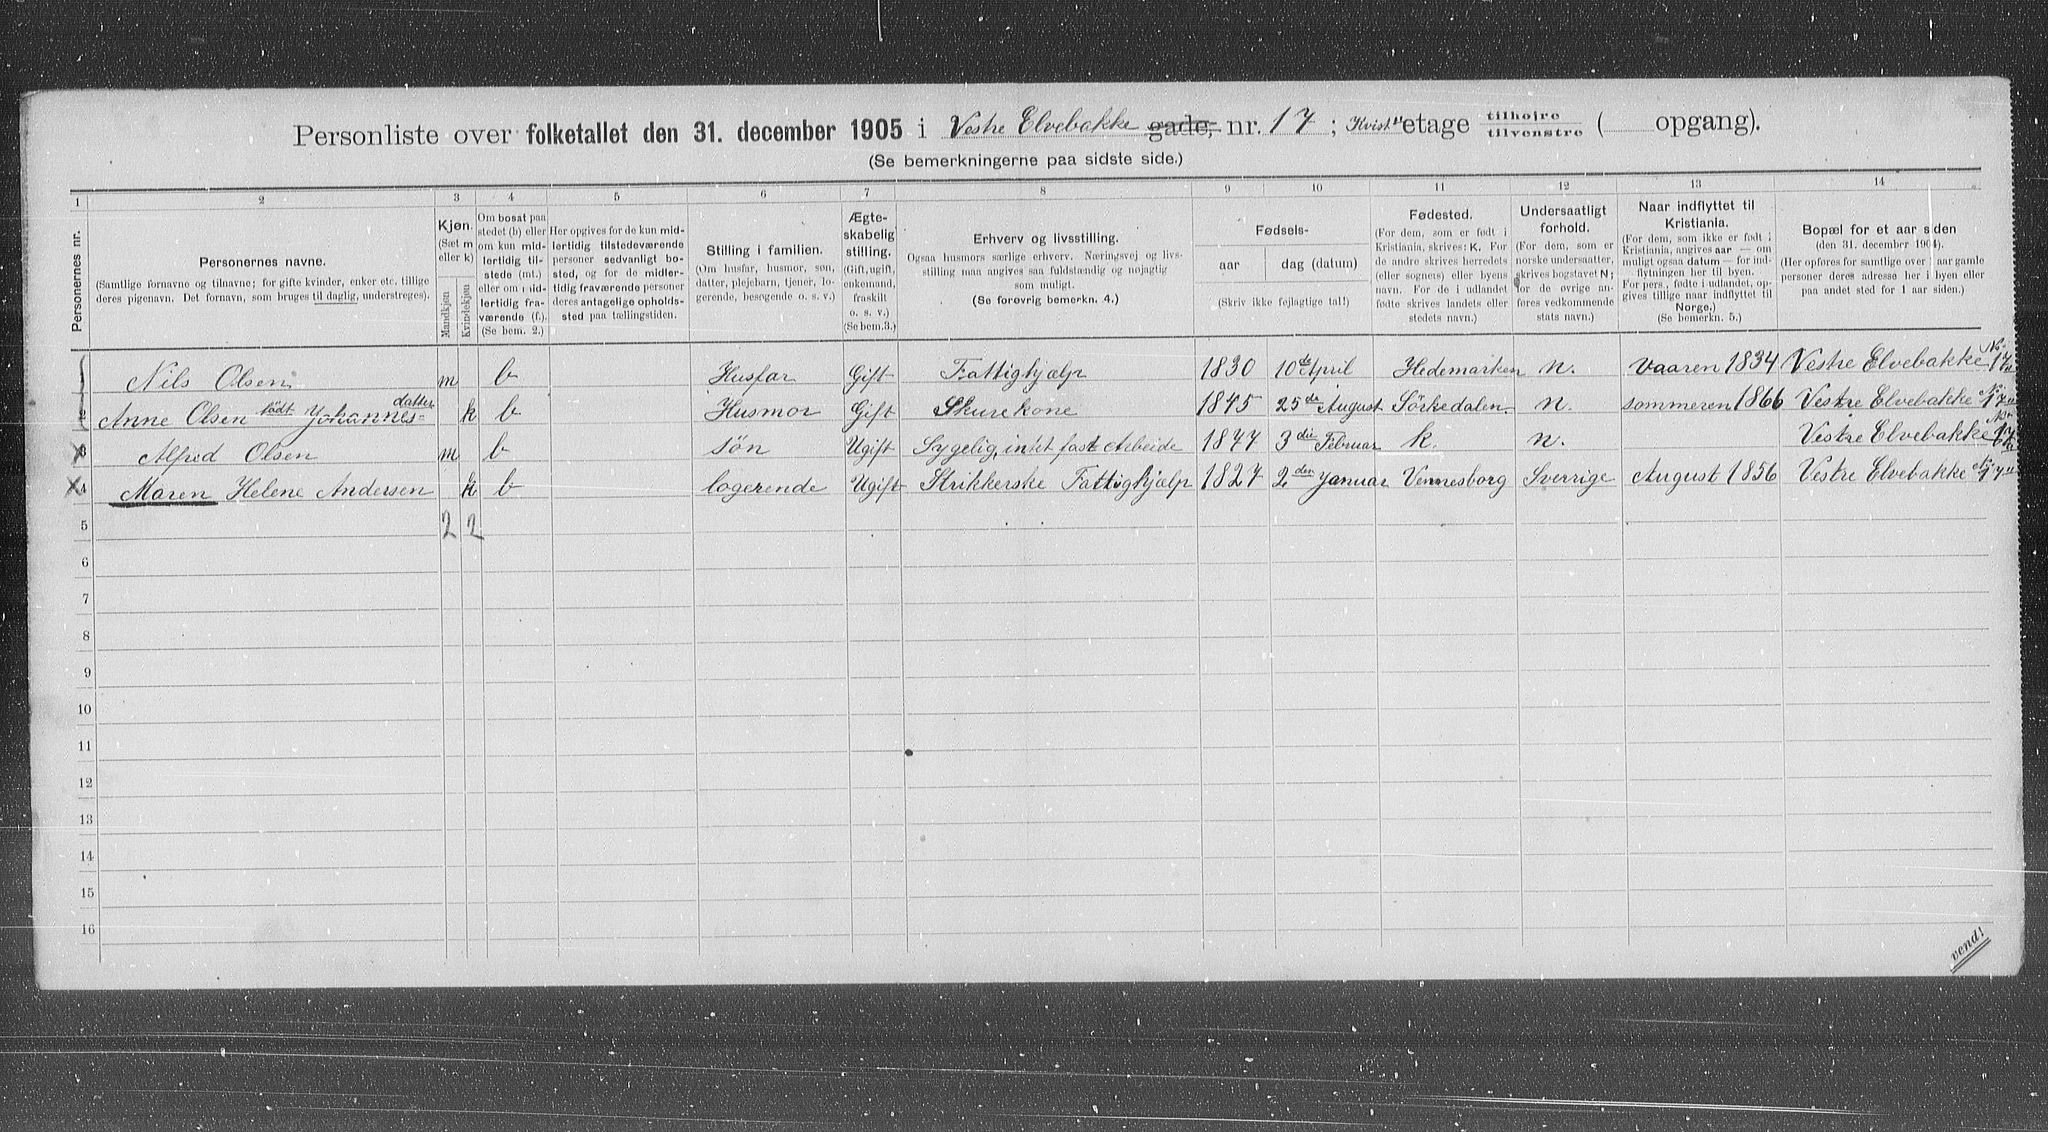 Personliste over folketallet den 31. december 1905 i Vestre Elvebakke gade, nr. 17; Kvist etage tilhøjre tilvenstre ( opgang).
(Se bemerkningerne paa sidste side.)
1 2 3 4 5 6 7 8 9 10 11 12 13 14
Personernes nr.
Personernes navne.
(Samtlige fornavne og tilnavne; for gifte kvinder, enker etc. tillige
deres pigenavn. Det fornavn, som bruges til daglig, understreges).
Kjøn.
(Sæt m
eller k)
Mandkjøn
Kvindekjøn
Om bosat paa
stedet (b) eller
om kun mid-
lertidig til-
stede (mt.)
eller om mid-
lertidig fra-
værende (f.).
(Se bem. 2.)
Her opgives for de kun mid-
lertidig tilstedeværende
personer sedvanligt bo-
sted, og for de midler-
tidig fraværende personer
deres antagelige opholds-
sted paa tællingstiden.
Stilling i familien.
(Om husfar, husmor, søn,
datter, plejebarn, tjener, lo-
gerende, besøgende o. s. v.)
Ægte-
skabelig
stilling.
(Gift, ugift,
enkemand,
fraskilt
o. s. v.)
(Se bem. 3.)
Erhverv og livsstilling.
Ogsaa husmors særlige erhverv. Næringsvej og livs-
stilling maa angives saa fuldstændig og nøjagtig
som muligt.
(Se forøvrig bemerkn. 4.)
Fødsels-
aar dag (datum)
(Skriv ikke fejlagtige tal!)
Fødested.
(For dem, som er født i
Kristiania, skrives: K. For
de andre skrives herredets
(eller sognets) eller byens
navn. For de i udlandet
fødte skrives landets eller
stedets navn.)
Undersaatligt
forhold.
(For dem, som er
norske undersaatter,
skrives bogstavet N;
for de øvrige an-
føres vedkommende
stats navn.)
Naar indflyttet til
Kristiania.
(For dem, som ikke er født i
Kristiania, angives aar — om
muligt ogsaa datum — for ind-
flytningen her til byen.
For pers., fødte i udlandet, op-
gives tillige naar indflyttet til
Norge.)
(Se bemerkn. 5.)
Bopæl for et aar siden
(den 31. december 1904).
(Her opføres for samtlige over 1 aar gamle
personer deres adresse her i byen eller
paa andet sted for 1 aar siden.)
1 Nils Olsen m b Husfar Gift Fattighjælp 1830 10de April Hedemarken n. Vaaren 1834 Vestre Elvebakke No. 17
2 Anne Olsen født Johannes-datter k b Husmor Gift Skurekone 1845 25de August Sörkedalen n. sommeren 1866 Vestre Elvebakke No 17
3 Alfred Olsen m b søn Ugift Sygelig, intet fast Arbeide 1877 3die Februar k. n. Vestre Elvebakke No 17
4 Maren Helene Andersen k b logerende Ugift Strikkerske Fattighjælp 1827 2den Januar Vennesborg Sverrige August 1856 Vestre Elvebakke No 17
5 2 2
6
7
8
9
10
11
12
13
14
15
16
vend!